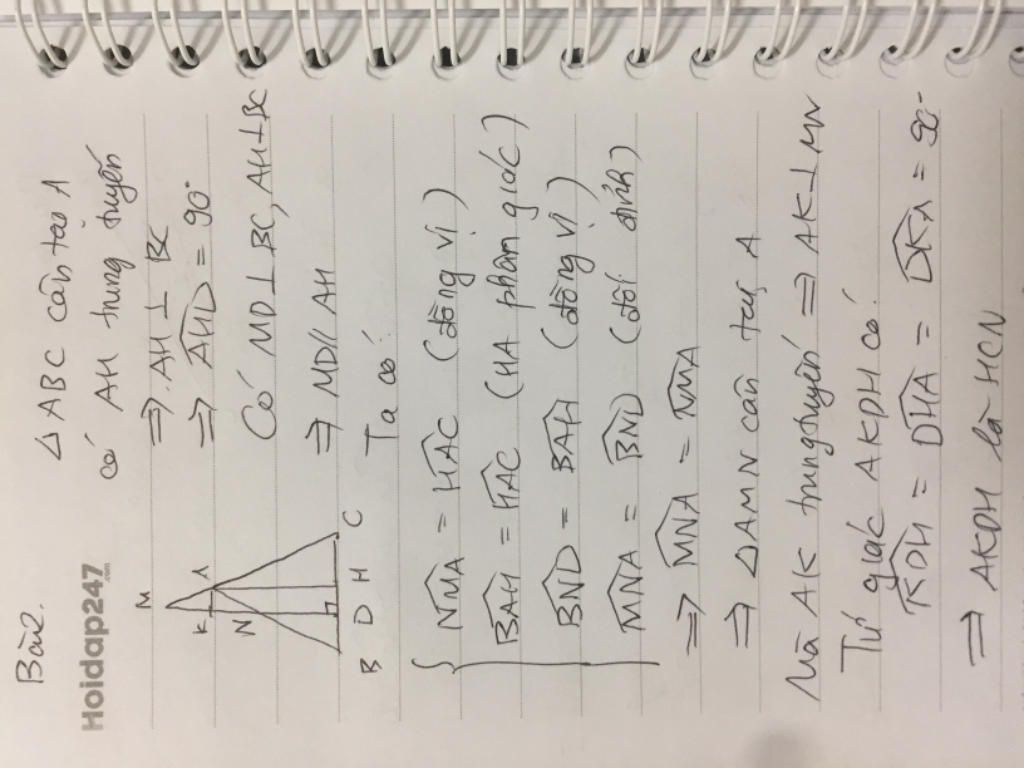 Bài 2.
Hoidap247.com
△ABC cân tại A
có AH trung tuyến
⇒ AH ⊥ BC
⇒ \widehat{AHD} = 90°
Có MD ⊥ BC, AH ⊥ BC
⇒ MD // AH
M
K A
N
B D H C
Ta có:
\widehat{NMA} = \widehat{HAC} (đồng vị)
\widehat{BAH} = \widehat{HAC} (HA phân giác)
\widehat{BND} = \widehat{BAH} (đồng vị)
\widehat{MNA} = \widehat{BND} (đối đỉnh)
⇒ \widehat{MNA} = \widehat{NMA}
⇒ △AMN cân tại A
Mà AK trung tuyến ⇒ AK ⊥ MN
Tứ giác AKDH có:
\widehat{KDH} = \widehat{DHA} = \widehat{DKA} = 90°
⇒ AKDH là HCN